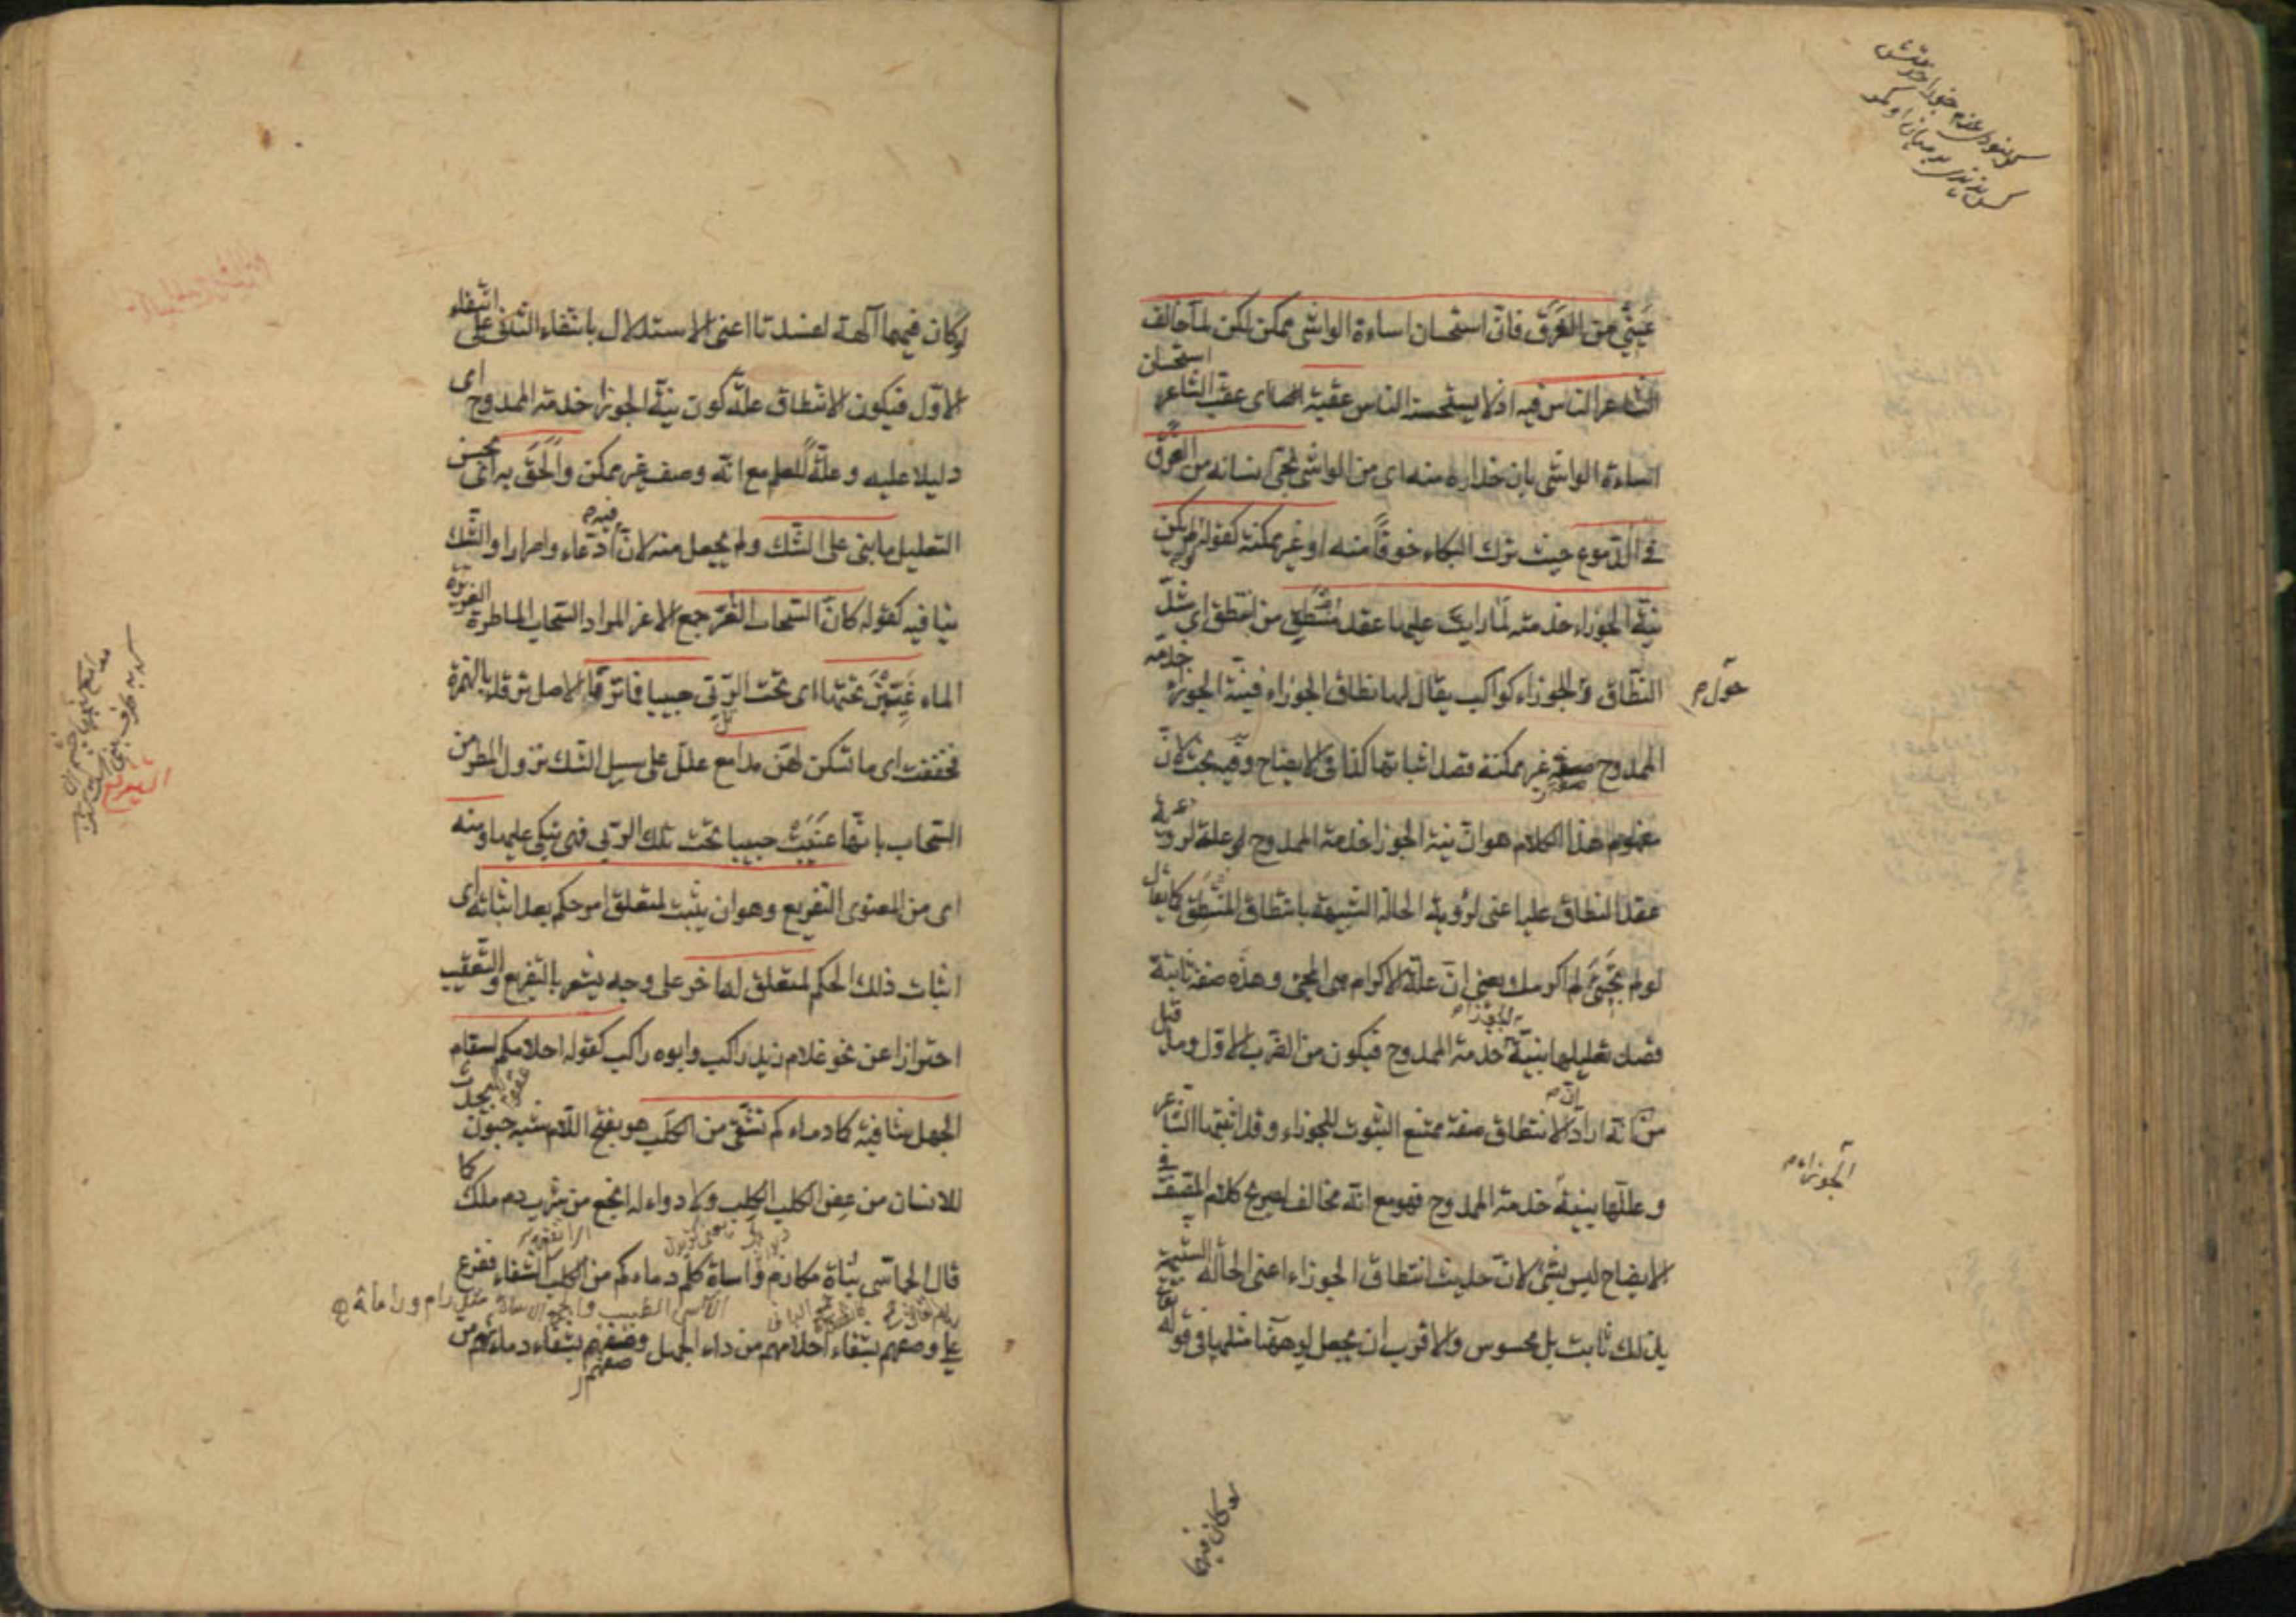 عيني من الغرق فان استحسان اساءة الواشي ممكن لكن لما خالف
الشاعر الناس فيه اذ لا يستحسنه الناس عقبه اى عقب الشاعر استحسان
اساءة الواشي بان حذاره منه اى من الواشي نجى انسانه من الغرق
في الدموع حيث ترك البكاء خوفاً منه او غير ممكنة كقوله لو لم يكن
نية الجوزاء خدمته لما رايت عليها عقد منتطق من انتطق اى شدّ
النطاق وحول الجوزاء كواكب يقال لها نطاق الجوزاء فنية الجوزاء خدمة
الممدوح صفة غير ممكنة قصد اثباتها كذا في الايضاح وفيه بحث لانّ
مفهوم هذا الكلام هو ان نية الجوزا خدمة الممدوح علة لرؤية
عقد النطاق عليها اعنى لرؤية الحالة الشبيهة بانتطاق المنتطق كما يقال
لو لم تجئ لم اكرمك يعنى ان علة الاكرام هى المجئ وهذه صفة ثابتة
قصد تعليلها بنية الجوزاء خدمة الممدوح فيكون من الضرب الاول وما قيل
من انّه اراد انّ الانتطاق صفة ممتنع الثبوت للجوزاء وقد اثبتها الشاعر
وعللها بنية خدمة الممدوح فهو مع انّه مخالف لصريح كلام المصنف في
الايضاح ليس بشئ لانّ حديث انتطاق الجوزاء اعنى الحالة الشبيهة
بذلك ثابت بل محسوس والاقرب ان يجعل لو ههنا مثلها في قوله تعالى
حول
الجوزاء
لو كان فيهما
لو كان فيهما آلهة لفسدتا اعنى الاستدلال بانتفاء الثانى على انتفاء
الاول فيكون الانتطاق علة كون نية الجوزا خدمة الممدوح اى
دليلا عليه وعلّةً للعلم مع انّه وصف غير ممكن والحق به اى بحسن
التعليل ما بنى على الشك ولم يجعل منه لانّ فيه ادعاء واصرارا والشك
ينافيه كقوله كانّ السحاب الغرّ جمع الاغر المراد السحاب الماطرة الغزيرة
الماء غيّبن تحتها اى تحت الربى حبيبا فما ترقأ الاصل ترقأ بالهمزة
فخففت اى ما تسكن لهن مدامع علل على سبيل الشك نزول المطر من
السحاب بانها غيّبت حبيبا تحت تلك الربى فهى تبكى عليها ومنه
اى من المعنوى التفريع وهو ان يثبت لمتعلق امر حكم بعد اثباته اى
اثبات ذلك الحكم لمتعلق له اخر على وجه يشعر بالتفريع والتعقيب
احترازا عن نحو غلام زيد راكب وابوه راكب كقوله احلامكم لسقام
الجهل شافية كما دماءكم تشفى من الكلب هو بفتح اللام شبه جنون يحدث
للانسان من عض الكلب الكلب ولا دواء له انجع من شرب دم ملك كما
قال الحماسى بناة مكارم واساة كلم دماءكم من الكلب الشفاء ففرع
الآسى الطبيب والجمع الاساة مثل رام ورماة
على وصفهم بشفاء احلامهم من داء الجهل وصفهم بشفاء دماءهم من
التفريع